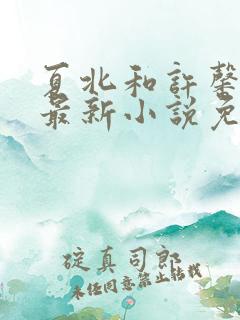 夏北和許馨
最新小說免
碇真司郎
未经同意禁止转载